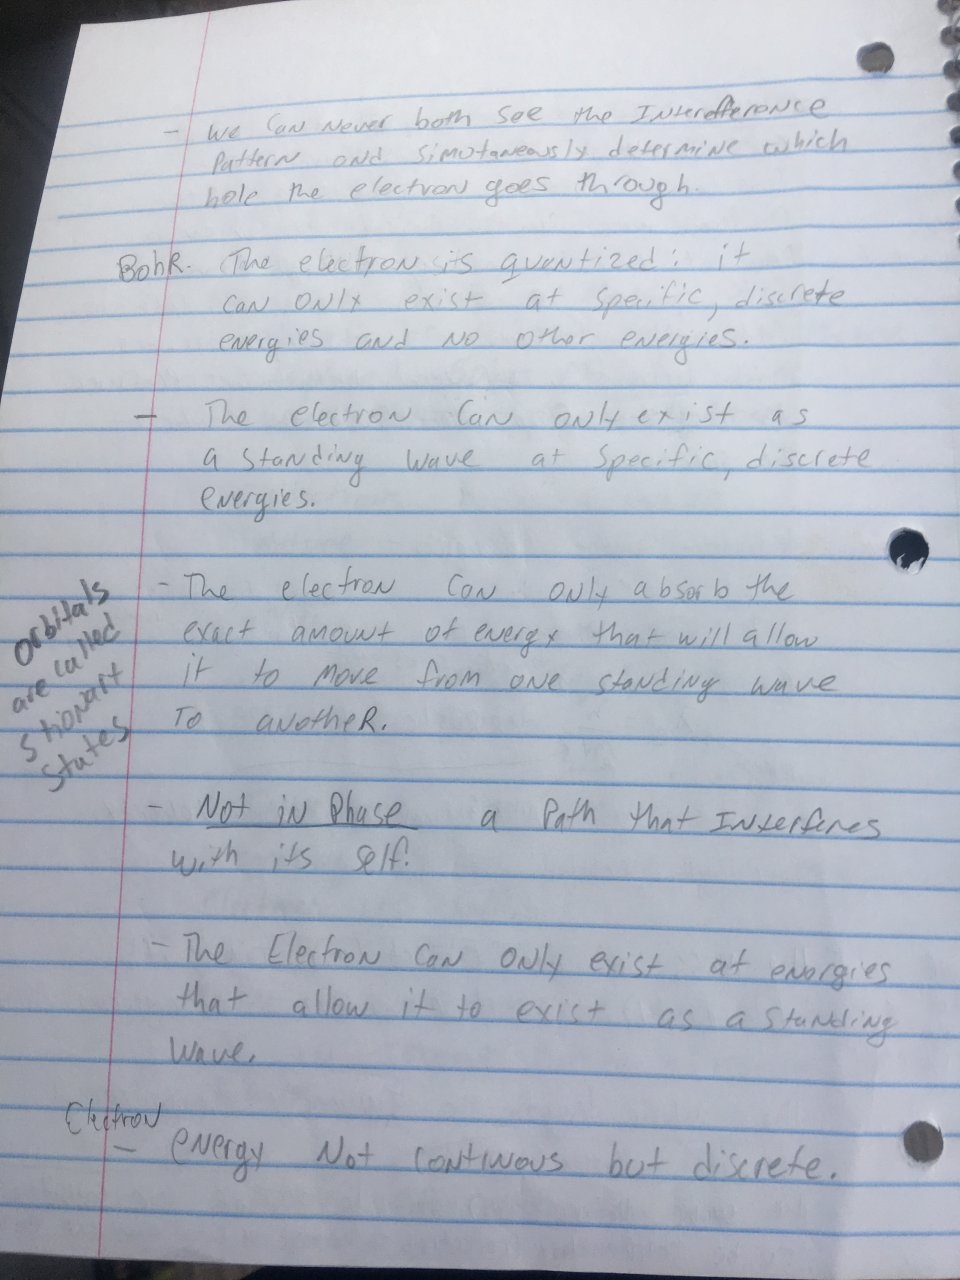 - We Can Never both See the Interefference
Pattern and Simotaneously determine which
hole the electron goes through.
BohR. The electron is quantized: it
can only exist at specific, discrete
energies and no other energies.
- The electron Can only exist as
a standing wave at specific, discrete
energies.
- The electron Can only absorb the
exact amount of energy that will allow
it to move from one standing wave
To anotheR.
orbitals
are called
Stionart
States
- Not in Phase a Path that Interferes
with its self.
- The Electron Can only exist at energies
that allow it to exist as a standing
wave.
Electron
- energy Not continous but discrete.